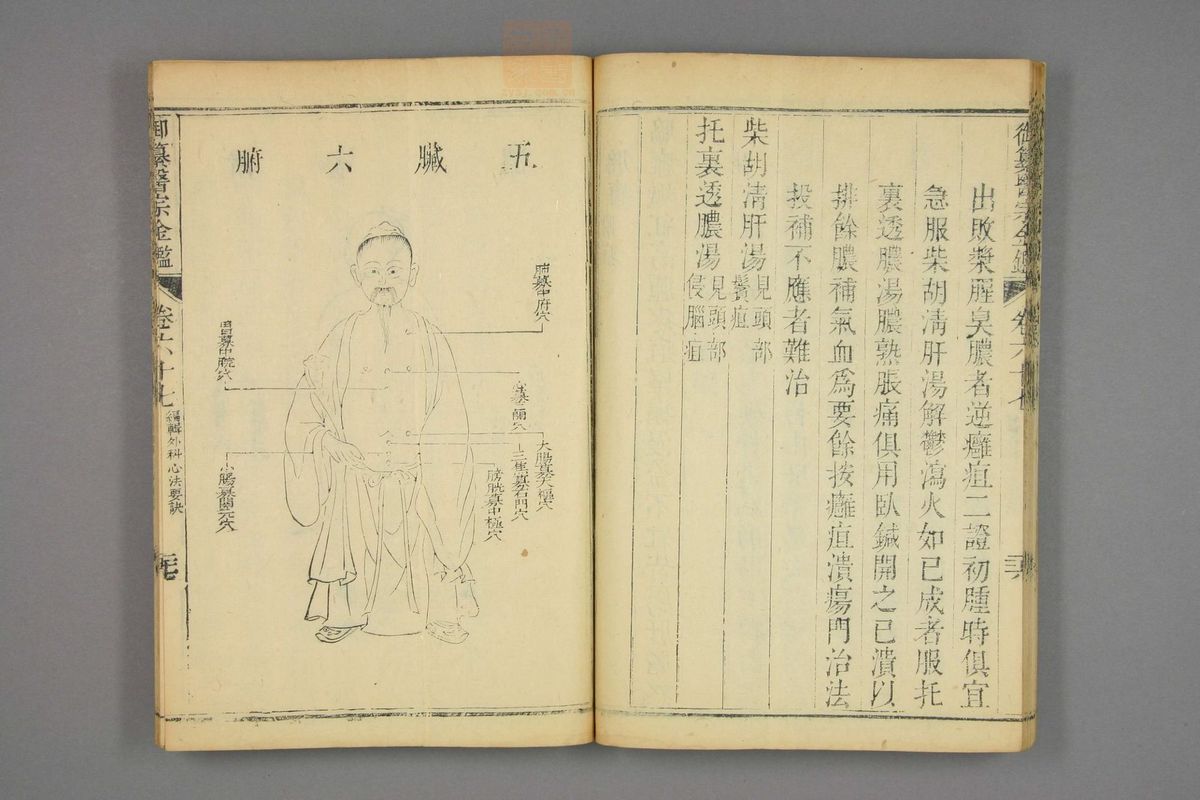 御纂醫宗金鑑
卷六十七
三六
出敗漿腥臭膿者逆癰疽二證初腫時俱宜
急服柴胡清肝湯解鬱瀉火如已成者服托
裏透膿湯膿熟脹痛俱用臥鍼開之已潰以
排餘膿補氣血爲要餘按癰疽潰瘍門治法
投補不應者難治
柴胡清肝湯見頭部
鬢疽
托裏透膿湯見頭部
侵腦疽
五臟六腑
肺募中府穴
大腸募天樞穴
三焦募石門穴
膀胱募中極穴
胃募中脘穴
小腸募關元穴
御纂醫宗金鑑
卷六十七
編輯外科心法要訣
三七